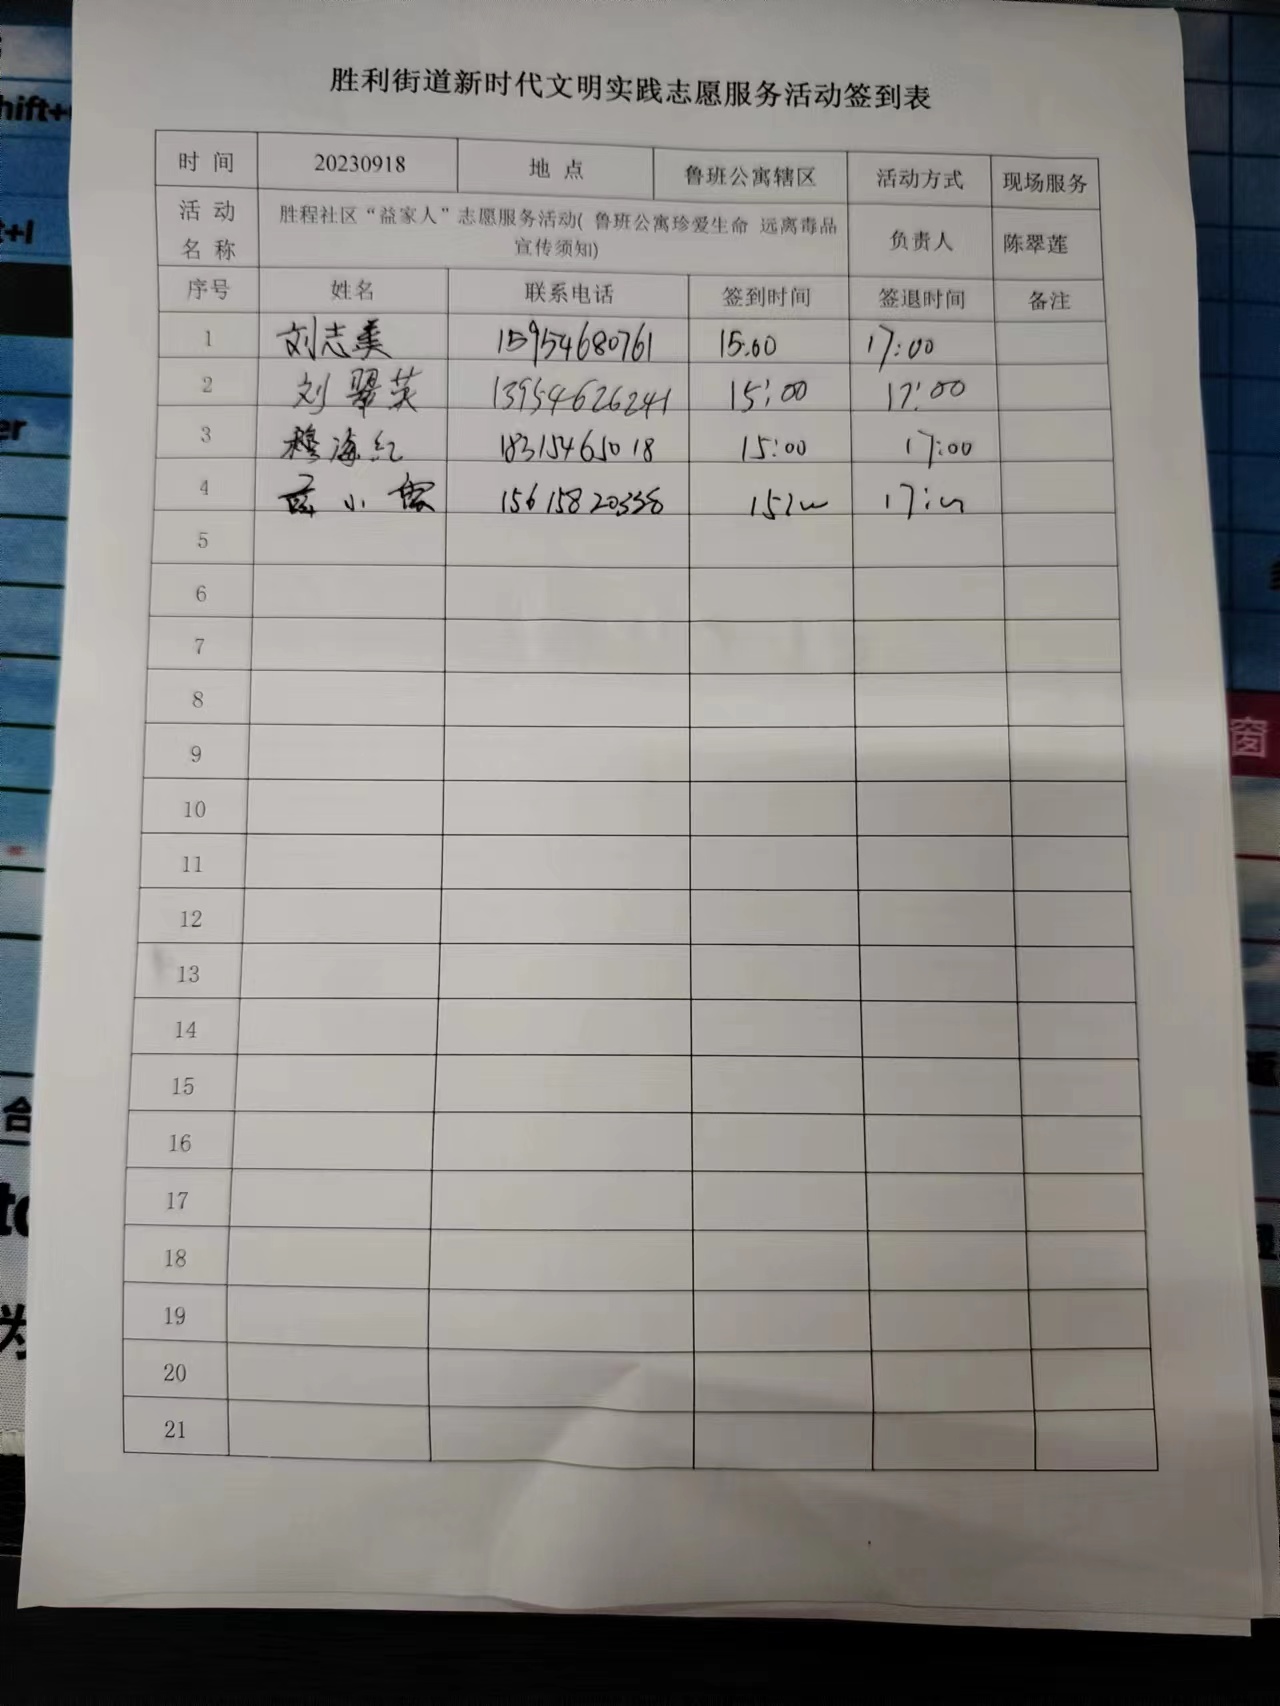 胜利街道新时代文明实践志愿服务活动签到表
时 间 20230918 地 点 鲁班公寓辖区 活动方式 现场服务
活 动 名 称 胜程社区“益家人”志愿服务活动( 鲁班公寓珍爱生命 远离毒品
宣传须知) 负责人 陈翠莲
序号 姓名 联系电话 签到时间 签退时间 备注
1 刘志美 15954680761 15:00 17:00
2 刘翠英 13954626241 15:00 17:00
3 穆海红 18315465018 15:00 17:00
4 小 15615820338
5
6
7
8
9
10
11
12
13
14
15
16
17
18
19
20
21
窗